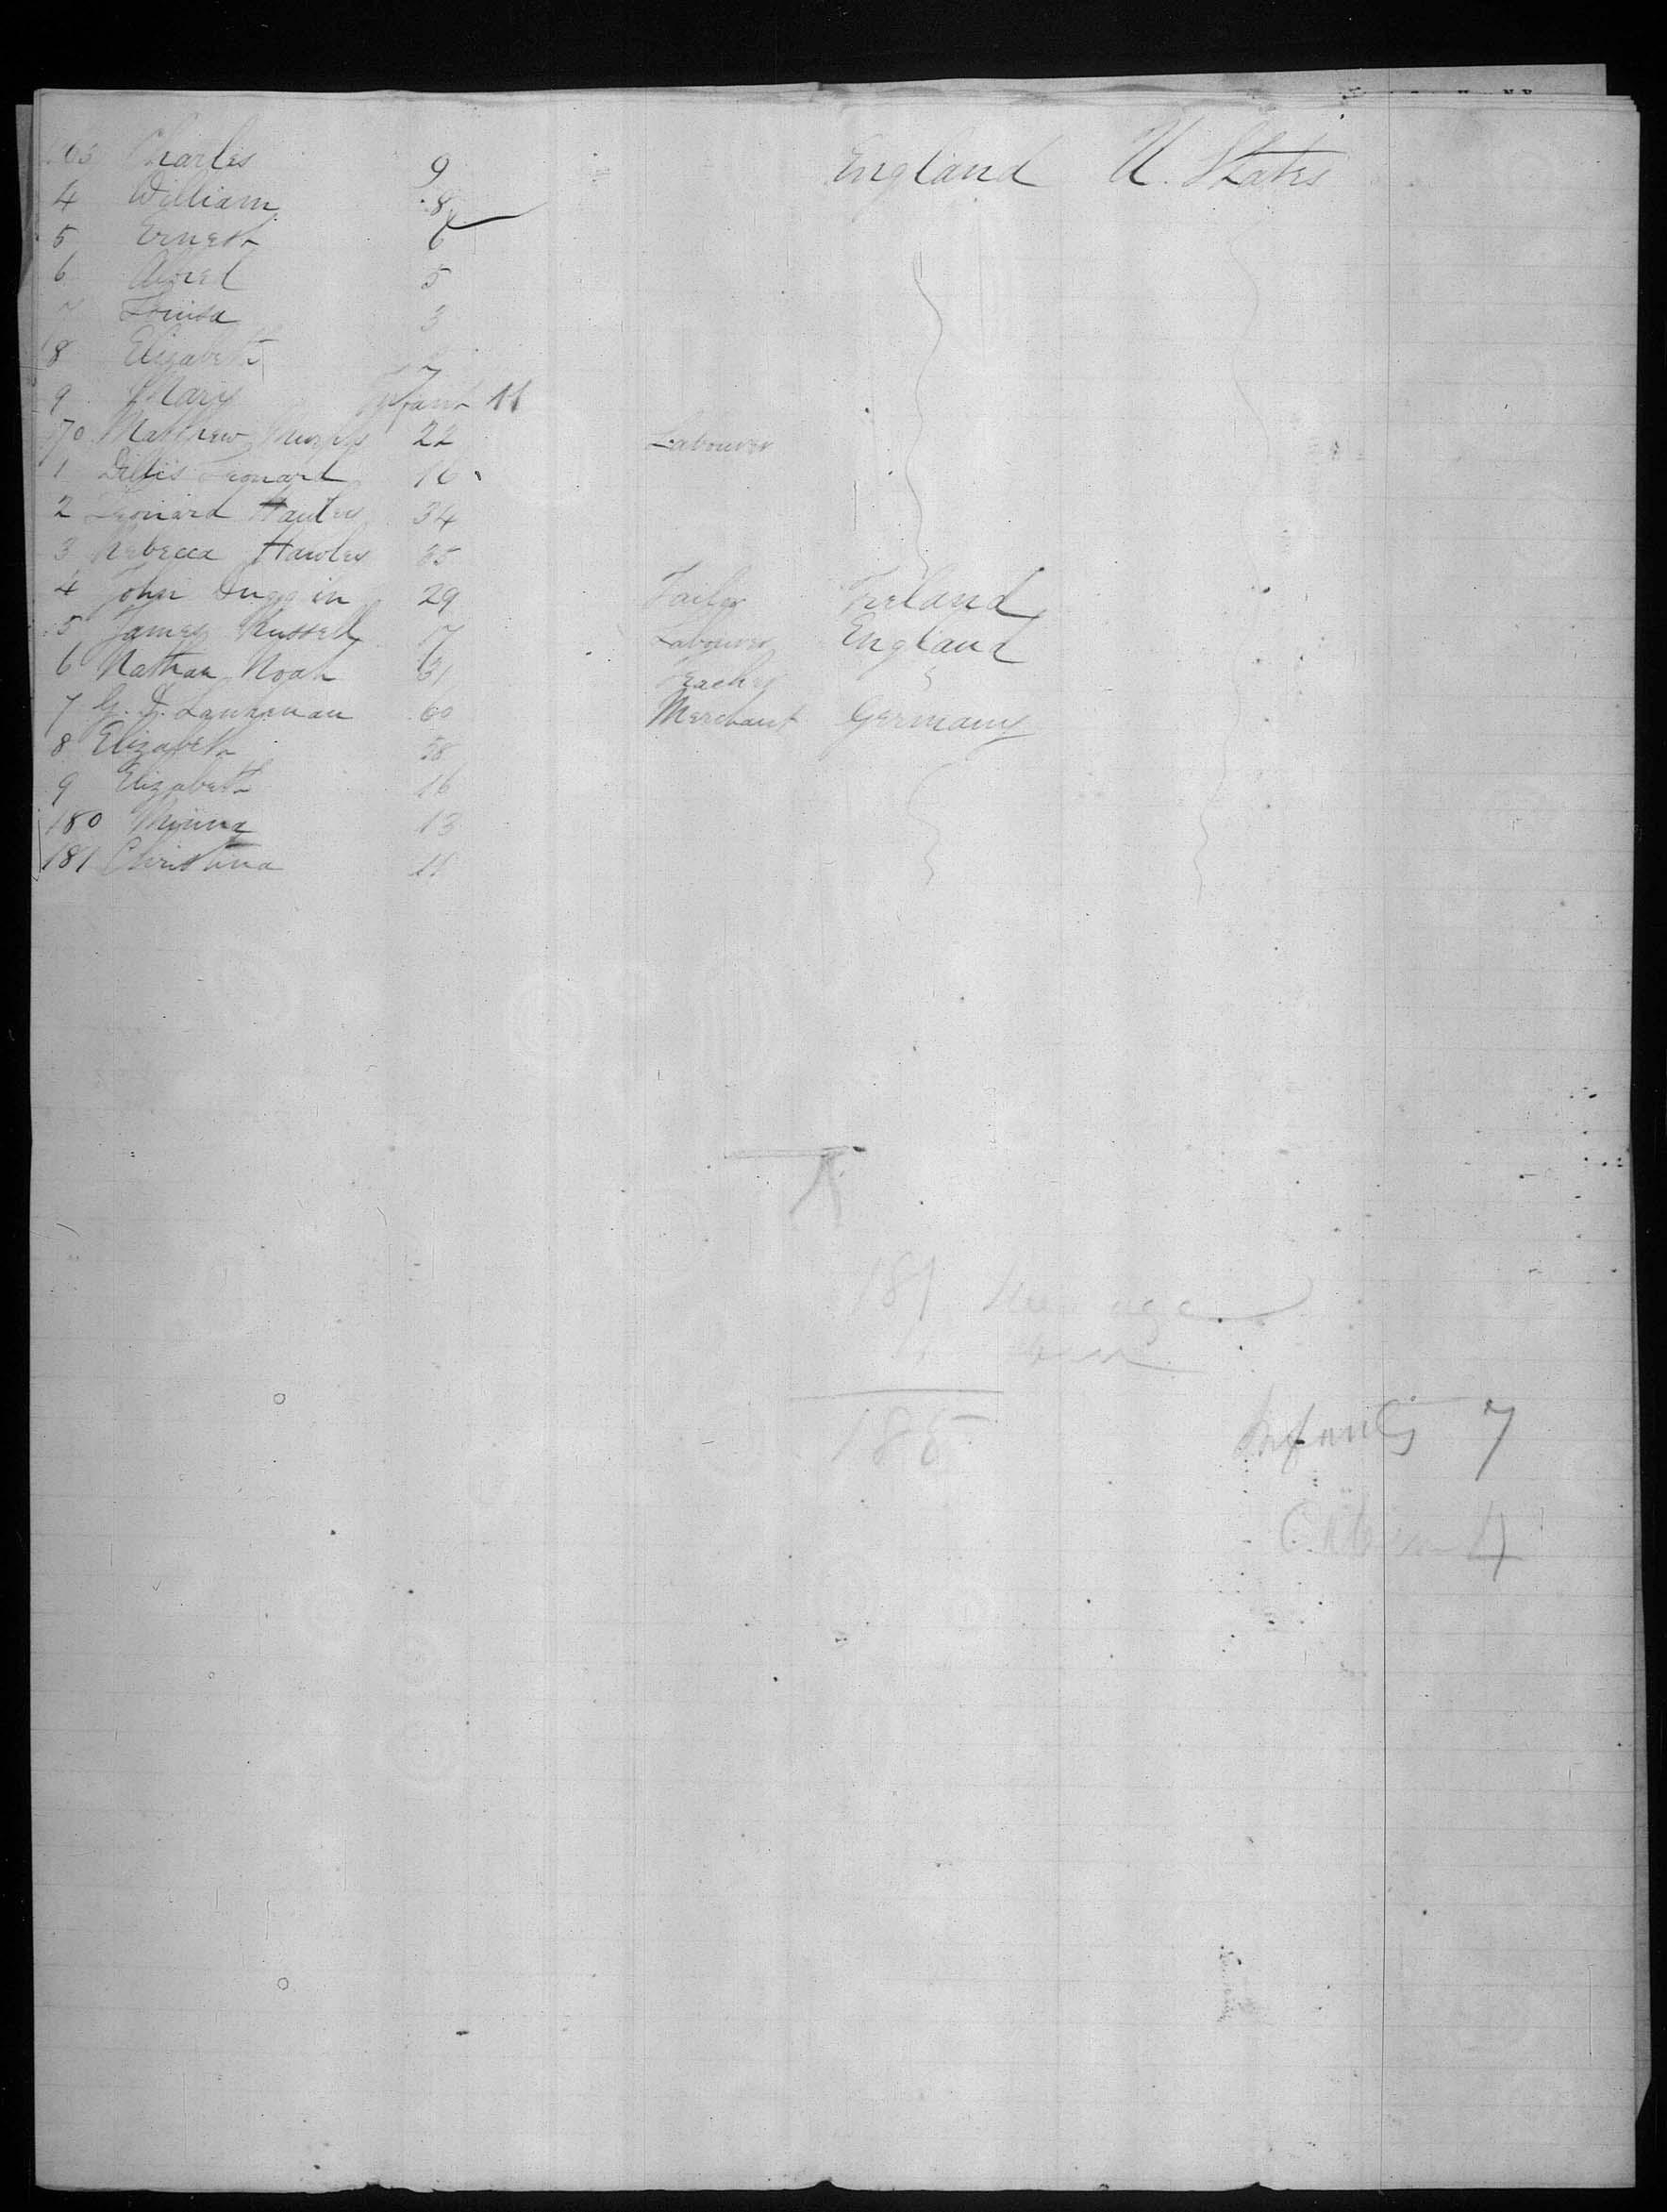 163 Charles 9 England U. States
4 William 8
5 Ernest 6
6 5
7 Louisa 3
8 Elizabeth 2
9 Mary Infant 11
170 Matthew Murphy 22 Labourer
1 Leonard 16
2 Leonard Hawley 34
3 Rebecca Hawley 35
4 John Duggin 29 Tailor Ireland
5 James Russell 17 Labourer England
6 Nathan Noah 31 Teacher "
7 G. 60 Merchant Germany
8 Elizabeth 38
9 Elizabeth 16
180 Minna 13
181 Christina 11
181
185
Infants 7
Cabin 4